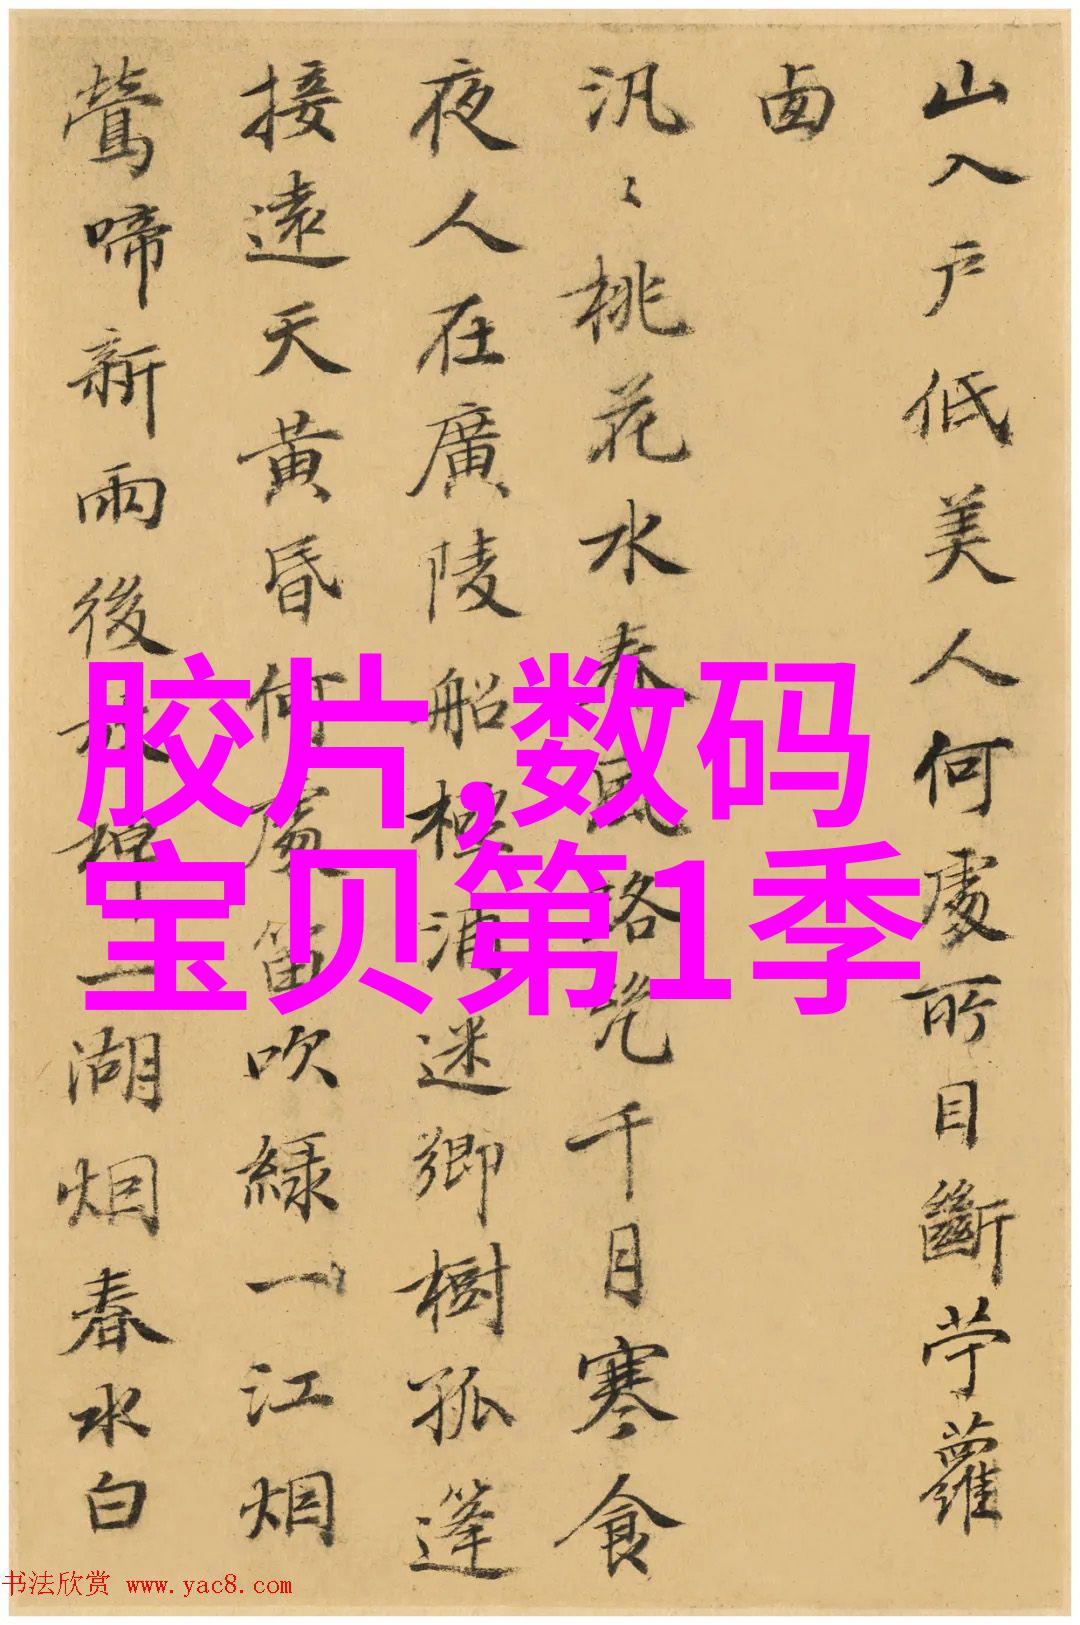 山入戶低美人何處所目斷苧蘿
汎〻桃花水春風路千月寒食
夜人在廣陵船極浦迷鄉樹孤篷
接遠天黃昏何處笛吹綠一江烟
鶯啼新雨後一湖烟春水白
胶片,数码
宝贝第1季
书法欣赏 www.yac8.com